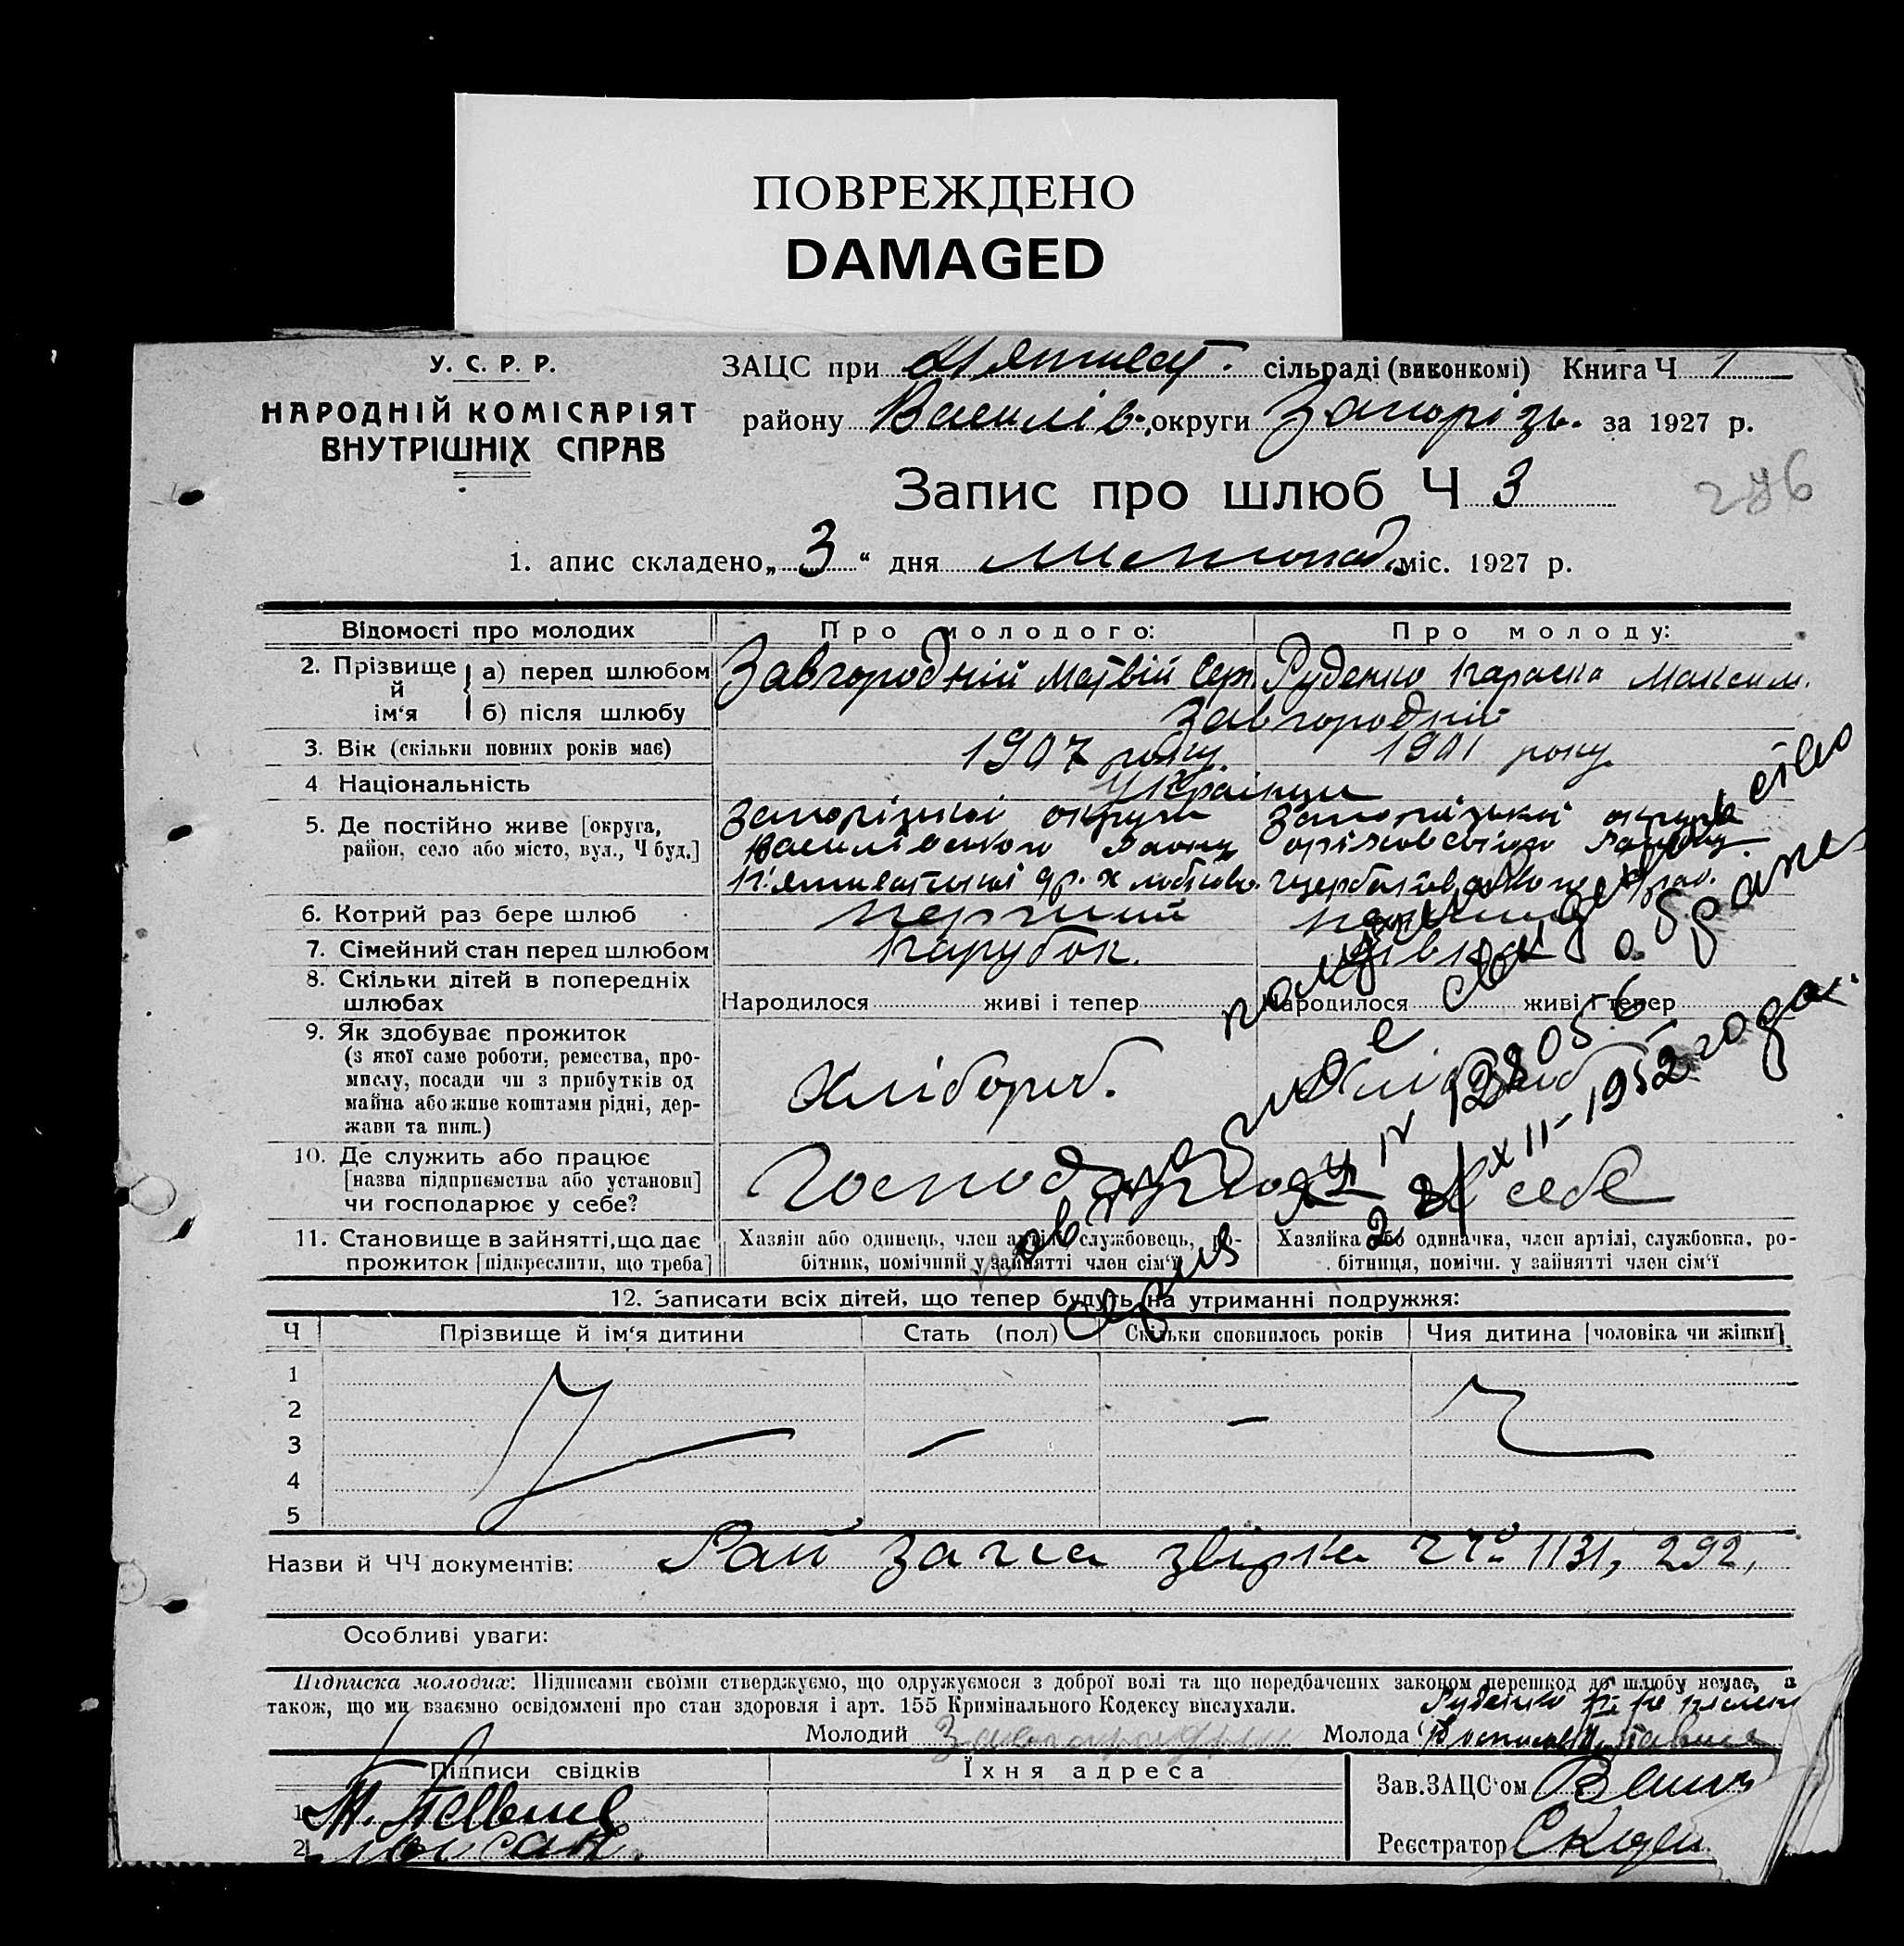 ПОВРЕЖДЕНО
DAMAGED
У. С. Р. Р.
НАРОДНІЙ КОМІСАРІЯТ
ВНУТРІШНІХ СПРАВ
ЗАЦС при сільраді (виконкомі) Книга Ч 1
району Василів., округи Запоріз. за 1927 р.
Запис про шлюб Ч 3
286
1. апис складено „ 3 “ дня листопад. міс. 1927 р.
Відомості про молодих Про молодого: Про молоду:
2. Прізвище й ім‘я а) перед шлюбом Завгородній Матвій Сер. Руденко Параска Максим.
б) після шлюбу Завгородній
3. Вік (скільки повних років має) 1907 року. 1901 року.
4 Національність Українци
5. Де постійно живе [округа, район, село або місто, вул., Ч буд.]
Запорізької округи Запорізької округи
Василівського району оріховського району
6. Котрий раз бере шлюб перший
7. Сімейний стан перед шлюбом Парубок. дівка
8. Скільки дітей в попередніх шлюбах Народилося живі і тепер Народилося живі і тепер
9. Як здобуває прожиток
(з якої саме роботи, ремества, про-
мислу, посади чи з прибутків од
майна або живе коштами рідні, дер-
жави та инш.)
Хлібороб. Хлібороб
10. Де служить або працює
[назва підприємства або установи]
чи господарює у себе?
Господарюют у себе
11. Становище в зайнятті, що дає
прожиток [підкреслити, що треба]
Хазяїн або одинець, член артілі, службовець, ро-
бітник, помічний у зайнятті член сім‘ї
Хазяйка або одиначка, член артілі, службовка, ро-
бітниця, помічн. у зайнятті член сім‘ї
свидетельство
о браке
серия
№
2/XII-1952 года.
12. Записати всіх дітей, що тепер будуть на утриманні подружжя:
Ч Прізвище й ім‘я дитини Стать (пол) Скільки сповнилось років Чия дитина [чоловіка чи жінки]
1
2
3
4
5
Назви й ЧЧ документів: Рай загса 1131, 292,
Особливі уваги:
Підписка молодих: Підписами своїми стверджуємо, що одружуємося з доброї волі та що передбачених законом перешкод до шлюбу немає, а
також, що ми взаємно освідомлені про стан здоровля і арт. 155 Кримінального Кодексу вислухали.
Руденко
Молодий Молода
Підписи свідків Їхня адреса
Зав. ЗАЦС‘ом
1
2
Реєстратор